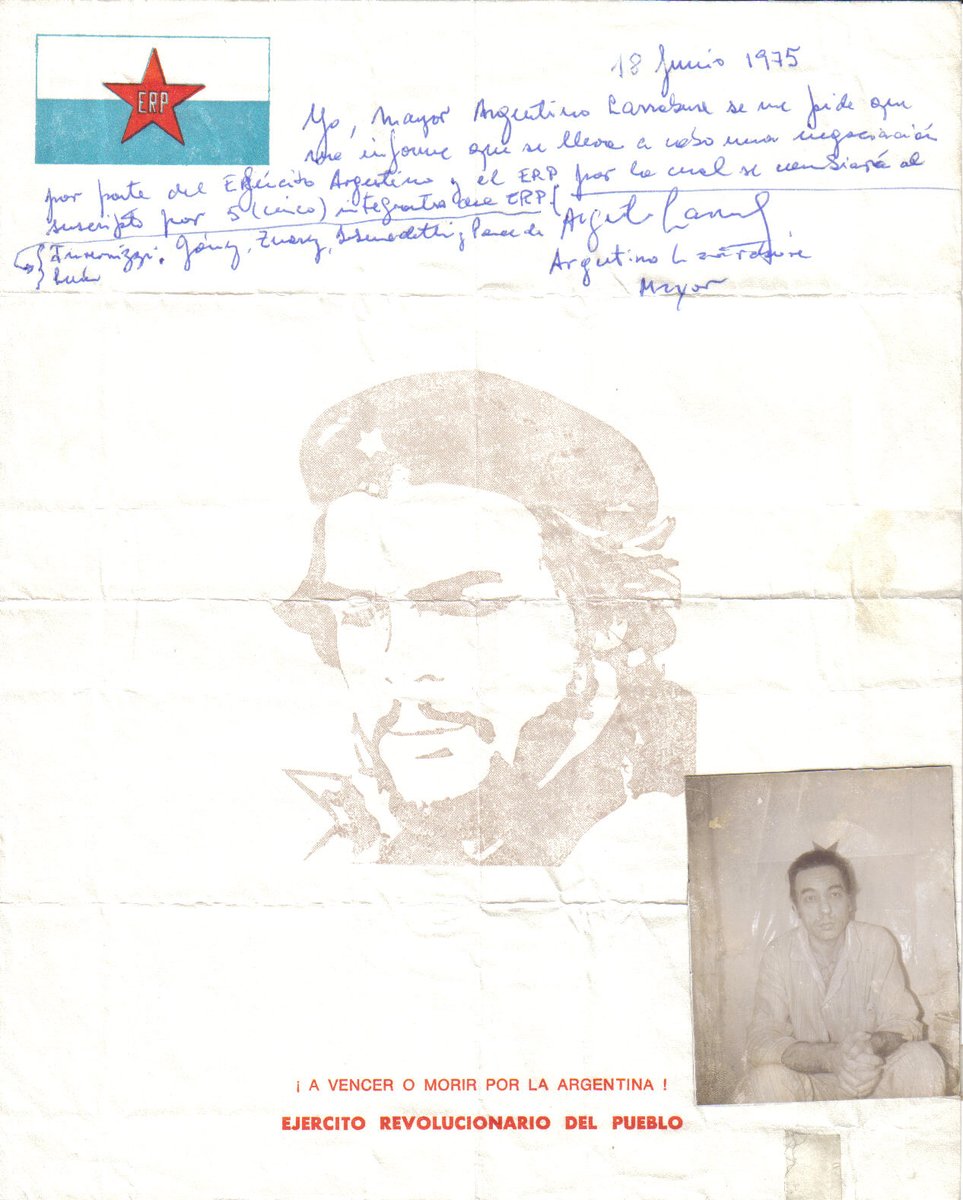 ERP
18 Junio 1975
Yo, Mayor Argentino Larrabure se me pide que
informe que se lleva a cabo una negociación
por parte del Ejército Argentino y el ERP por la cual se cambiará al
suscripto por 5 (cinco) integrantes ERP
Invernizzi, Gómez, Zuarez, Benedetti y Ponce de
Argentino Larrabure
Mayor
¡ A VENCER O MORIR POR LA ARGENTINA !
EJERCITO REVOLUCIONARIO DEL PUEBLO